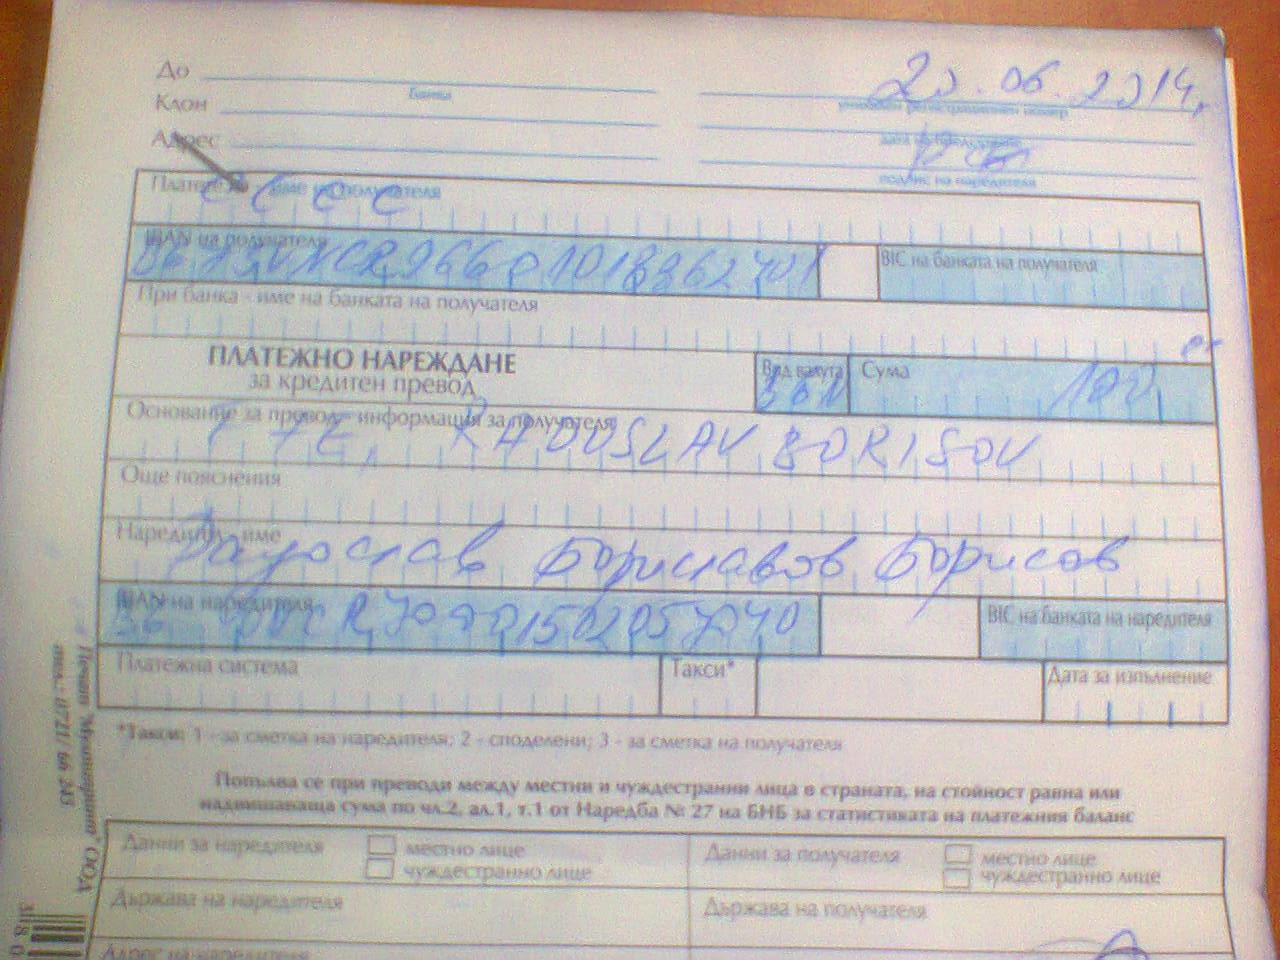 До
Банка
20.06.2014г.
уникален регистрационен номер
Клон
дата на представяне
Адрес
подпис на наредителя
Платете на - име на получателя
С С С С
IBAN на получателя
BIC на банката на получателя
При банка - име на банката на получателя
ПЛАТЕЖНО НАРЕЖДАНЕ
за кредитен превод
Вид валута
Сума
100
Основание за превод - информация за получателя
RADOSLAV BORISOV
Още пояснения
Наредител - име
Радослав Бориславов Борисов
IBAN на наредителя
BIC на банката на наредителя
Платежна система
Такси*
Дата за изпълнение
*Такси: 1 - за сметка на наредителя; 2 - споделени; 3 - за сметка на получателя
Попълва се при преводи между местни и чуждестранни лица в страната, на стойност равна или
надвишаваща сума по чл.2, ал.1, т.1 от Наредба № 27 на БНБ за статистиката на платежния баланс
Данни за наредителя
местно лице
чуждестранно лице
Данни за получателя
местно лице
чуждестранно лице
Държава на наредителя
Държава на получателя
Адрес на наредителя